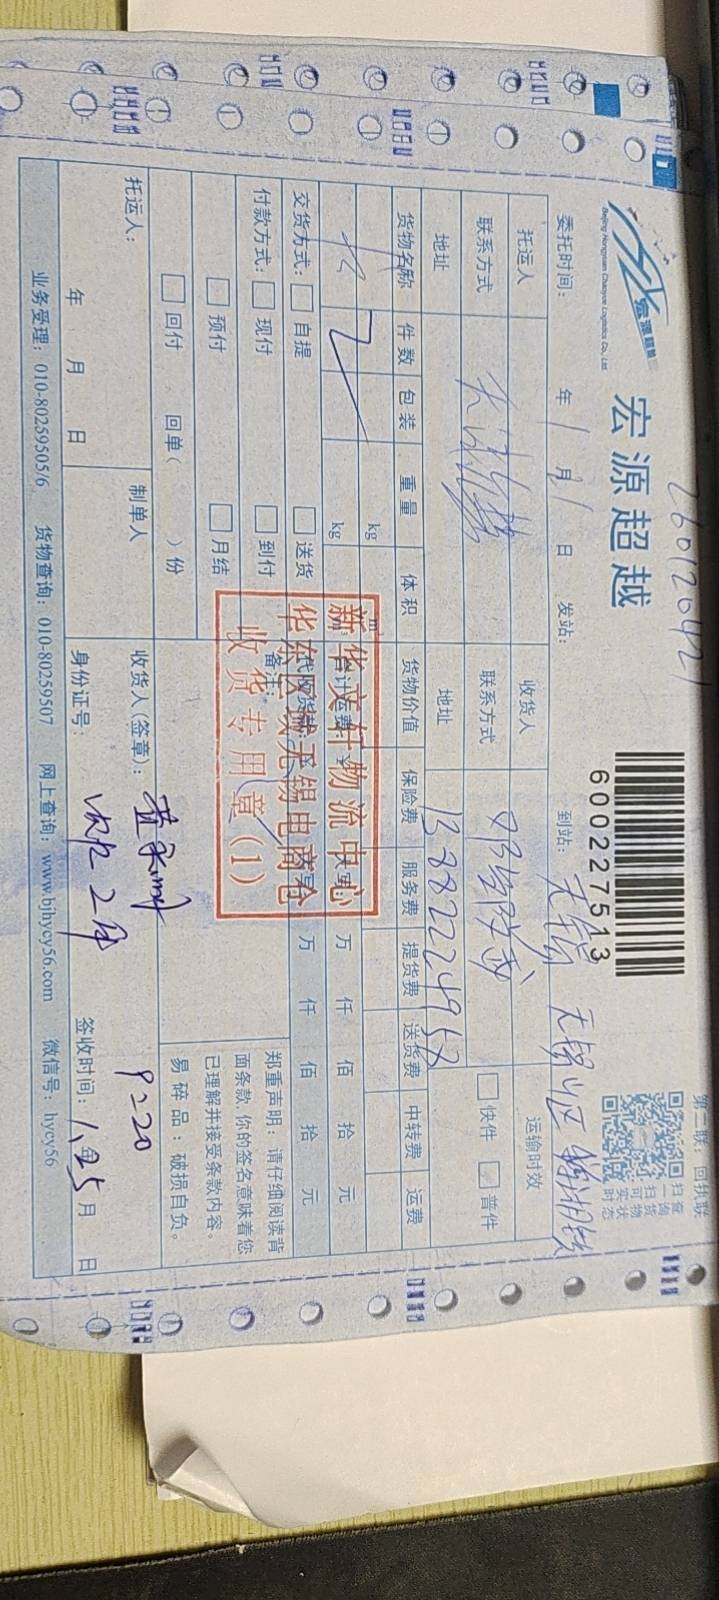 260120421
宏源超越
Beijing Hongyuan Chaoyue Logistics Co., Ltd.
600227513
第二联：回执联
扫一扫可实时
查询货物状态
委托时间： 年 1 月 21 日 发站： 到站：无锡 无锡
托运人 收货人 运输时效
联系方式 联系方式 快件 普件
地址 地址 13882224952
货物名称 件数 包装 重量 体积 货物价值 保险费 服务费 提货费 送货费 中转费 运费
kg m³
kg
交货方式： 自提 送货
合计运费： 万 仟 佰 拾 元
付款方式： 现付 到付
代收货款： 万 仟 佰 拾 元
预付 月结
备注：
回付 回单（ ）份
新华文轩物流中心
华东区域无锡电商仓
收货专用章(1)
郑重声明：请仔细阅读背
面条款，你的签名意味着您
已理解并接受条款内容。
易碎品：破损自负。
托运人： 制单人 收货人(签章)：
9:20
年 月 日 身份证号： 签收时间： 月 日
业务受理：010-80259505/6 货物查询：010-80259507 网上查询：www.bjhycy56.com 微信号：hycy56